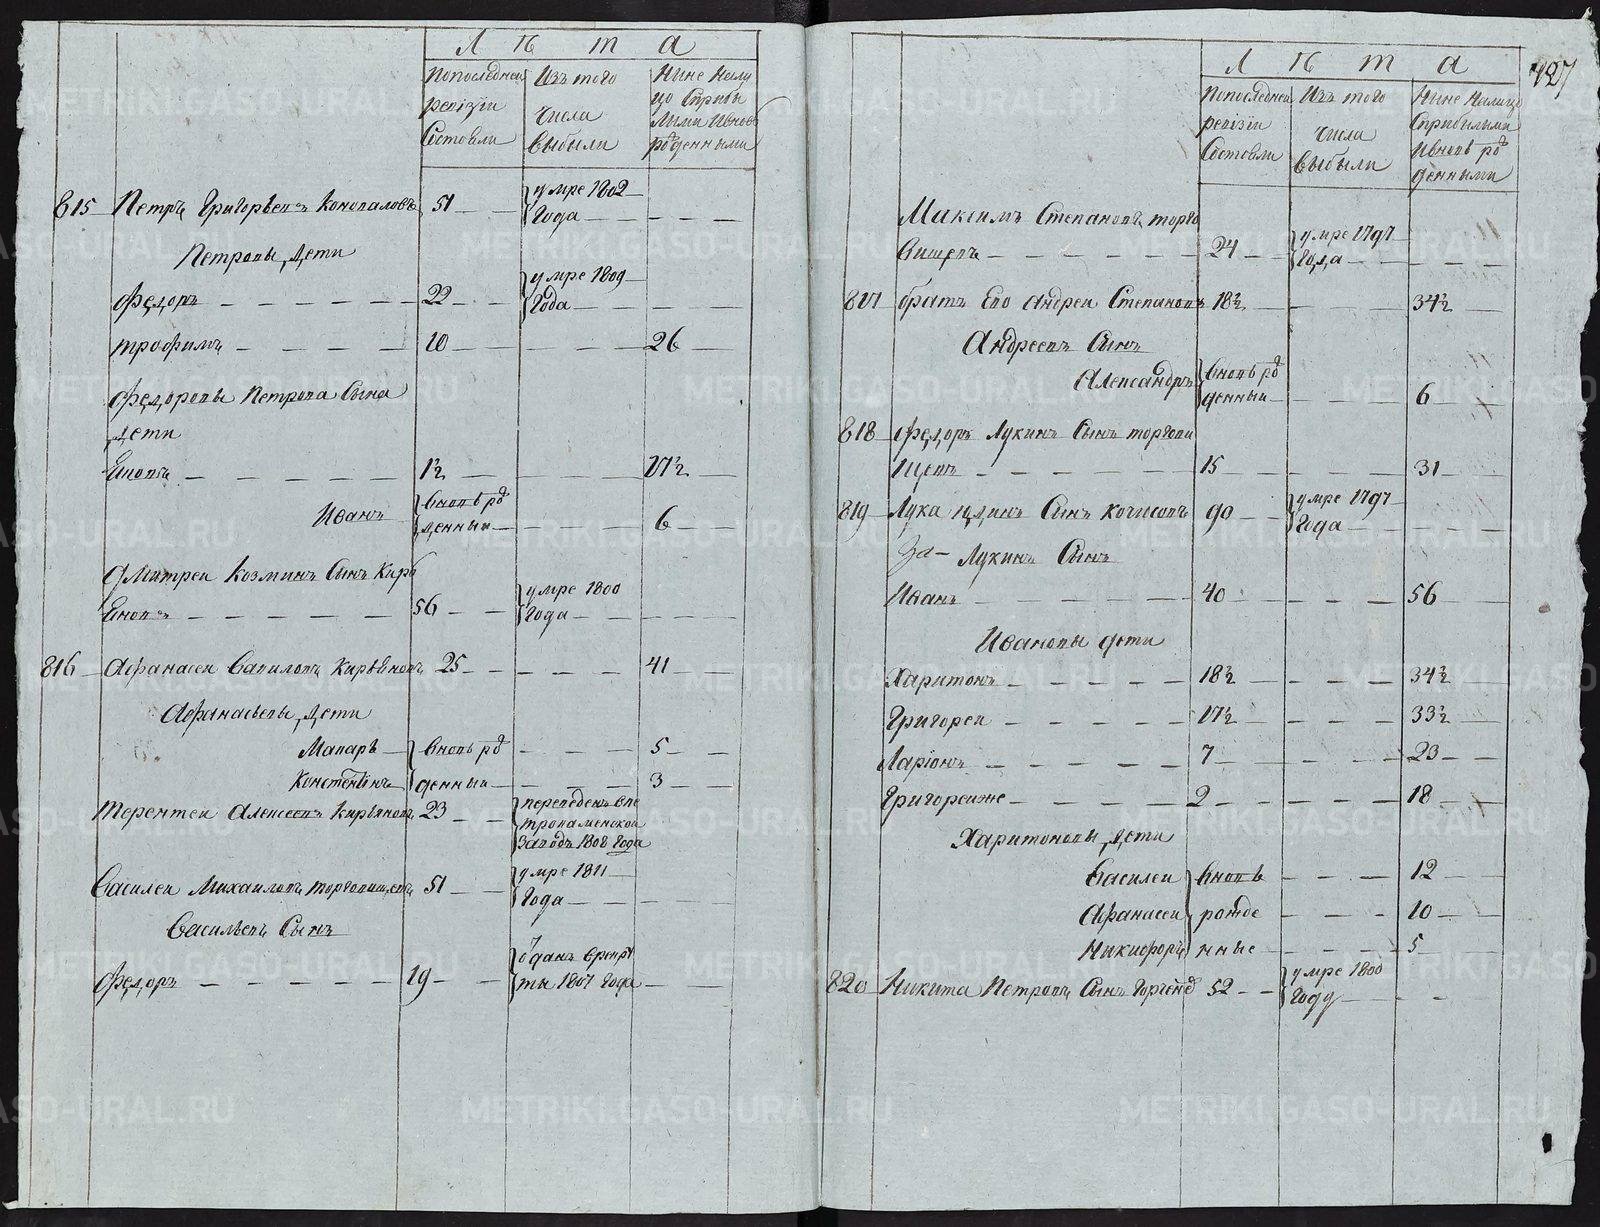 Лѣта
Попоследней ревiзiи Состояли
Изъ того Числа выбыли
Ныне Налицо Сприбылыми Ивновь рожденными
815 Петръ Григорьевъ Коновалов 51 умре 1802 Года
Петровы дети
Федоръ 22 умре 1809 Года
трофимъ 10 26
Федоровы Петрова Сына
дети
1½ 17½
Иванъ вновь рожденный 6
Дмитреи Козминъ Сынъ Кирь
яновъ 56 умре 1800 Года
816 Афанасеи Савиловъ Кирьяновъ 25 41
Афанасьевы дети
Макаръ вновь рож 5
Констентинъ денныи 3
Терентеи Алексеевъ Кирьяновъ 23 переведенъ Впе
тровāменской
Заводъ 1808 Года
Василеи Михаиловъ торговищевъ 51 умре 1811 Года
Васильевъ Сынъ
Федоръ 19 отданъ Врекру
ты 1807 Года
127
Лѣта
Попоследней ревiзiи Состояли
Изъ того Числа выбыли
Ныне Налицо Сприбылыми Ивновь рожденными
Максимъ Степановъ торго
вищевъ 24 умре 1797 Года
817 братъ Ево Андреи Степановъ 18½ 34½
Андреевъ Сынъ
Александръ вновь рожденныи 6
818 Федоръ Лукинъ Сынъ торгови
щевъ 15 31
819 Лука Сынъ 90 умре 1797 Года
Лукинъ Сынъ
Иванъ 40 56
Ивановы дети
Харитонъ 18½ 34½
Григореи 17½ 33½
Ларiонъ 7 23
Григореиже 2 18
Харитоновы дети
Василеи вновь 12
Афанасеи рожде 10
Никифоръ нные 5
820 Никита Петровъ Сынъ 52 умре 1800 Году
METRIKI.GASO-URAL.RU